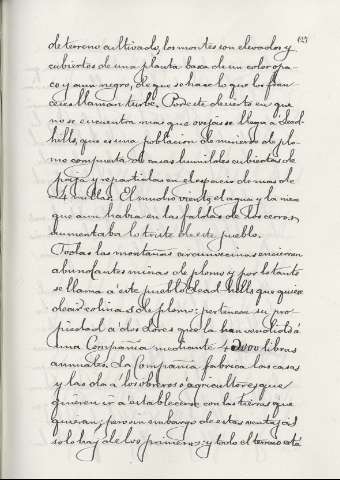 127
de terreno cultivado, los montes son elevados y
cubiertos de una planta baxa de un color opa-
co y aun negro, de que se hace lo que los fran-
ceses llaman turbe. Por este desierto en que
no se encuentra mas que ovejas se llega a Lead-
hills, que es una poblacion de mineros de plo-
mo compuesta de casas humildes cubiertas de
paja y repartidas en el espacio de mas de
4 millas. El mucho viento, el agua y la nieve
que aun habia en las faldas de los cerros,
aumentaba lo triste de este pueblo.
Todas las montañas circunvecinas encierran
abundantes minas de plomo y por lo tanto
se llama á este pueblo Lead-hills que quiere
decir colinas de plomo: pertenece su pro-
piedad á dos Lores que la han vendido á
una Compañía mediante libras
annuales. La Compañia fabrica las casas
y las da á los obreros ó agricultores que
quieren ir á establecerse con las tierras que
quieran; pero sin embargo de estas ventajas
solo hay de los primeros y todo el terreno está